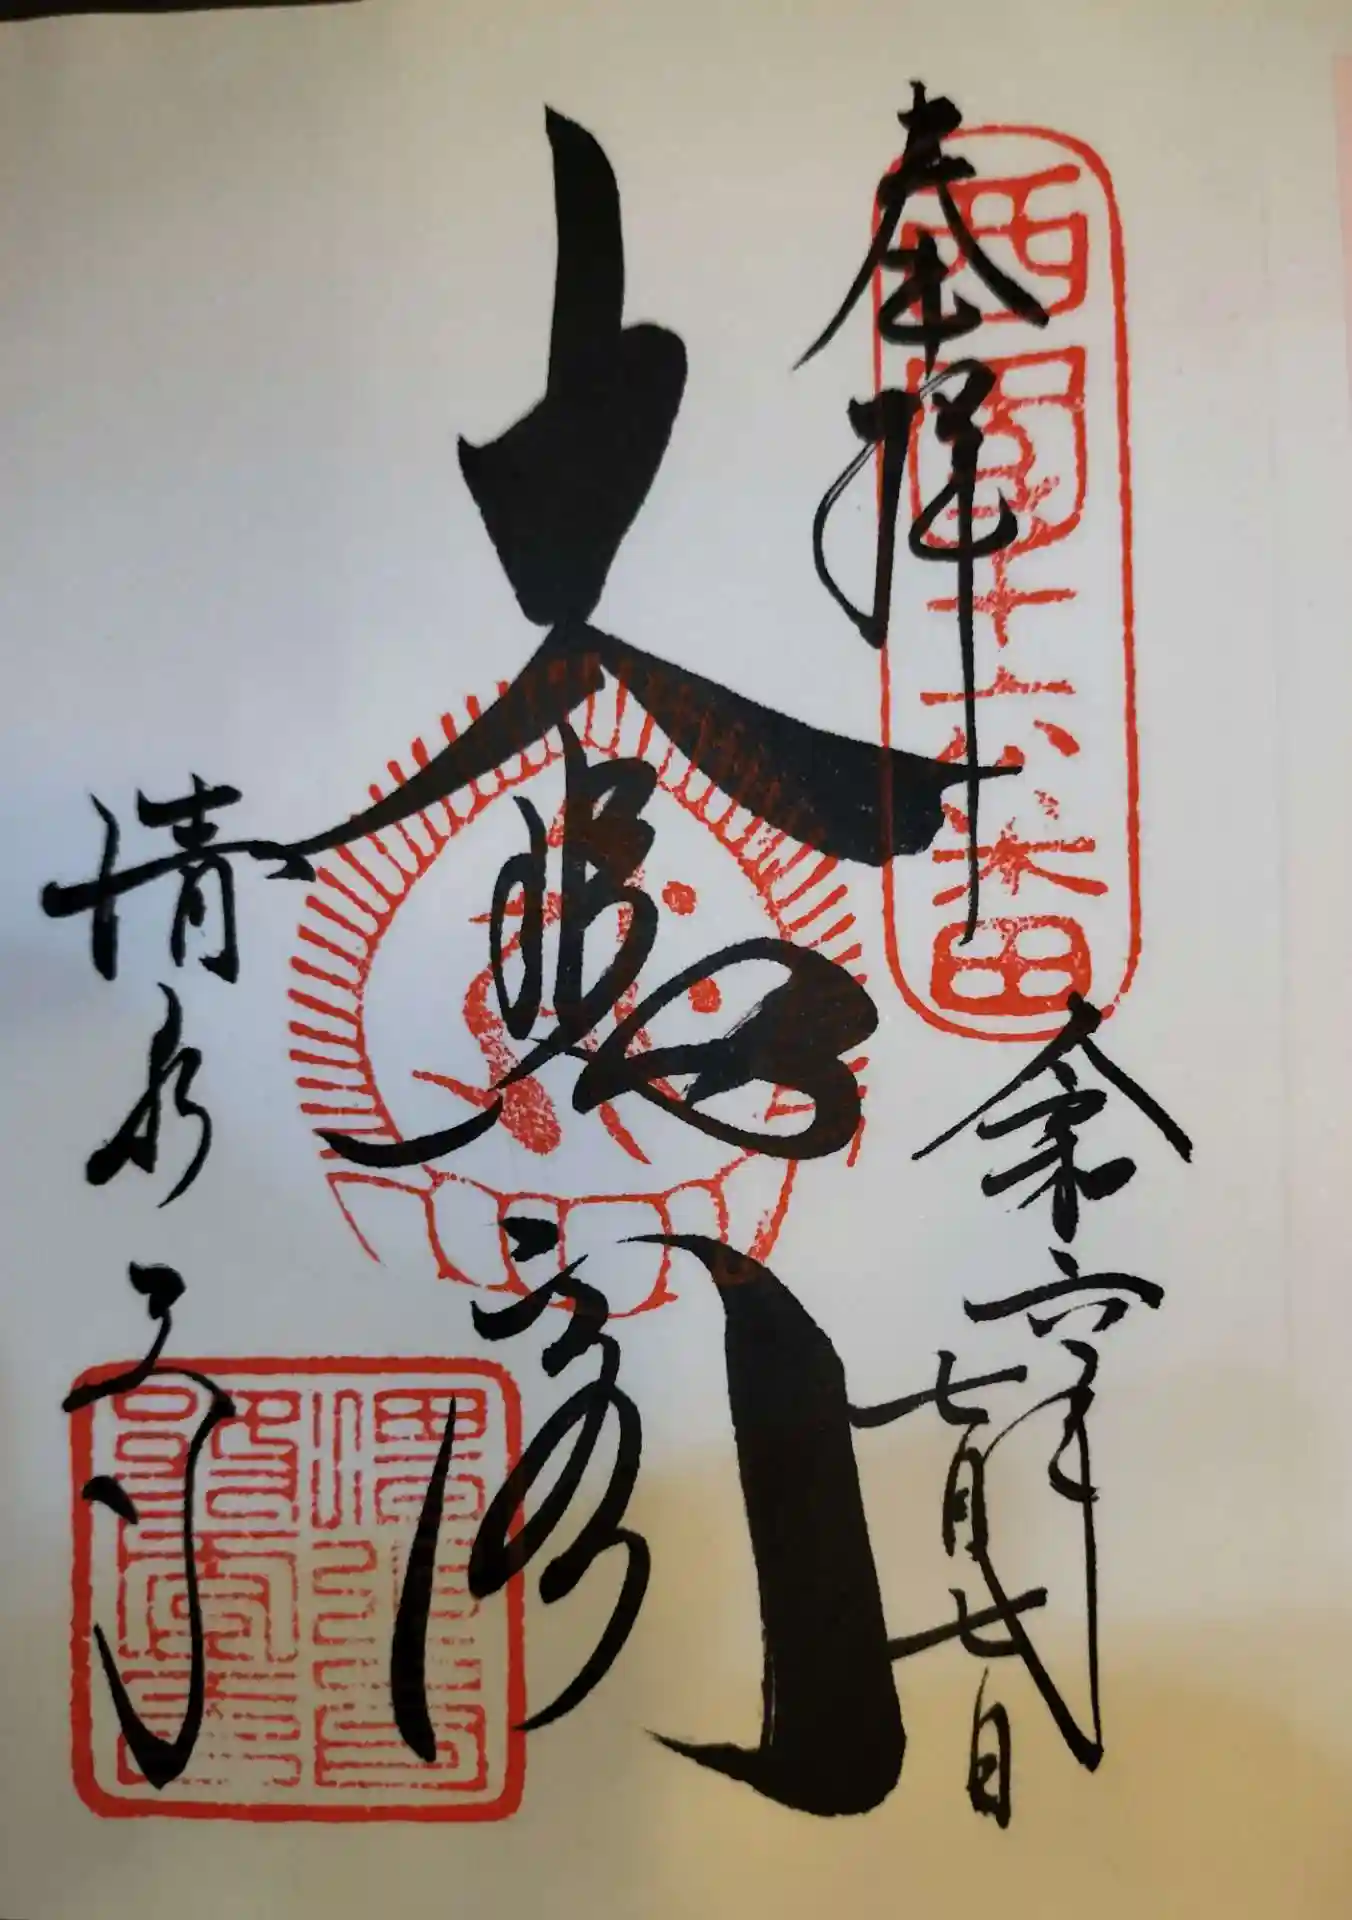 奉拝
西國十六番
令和六年
七月七日
大悲閣
清水寺